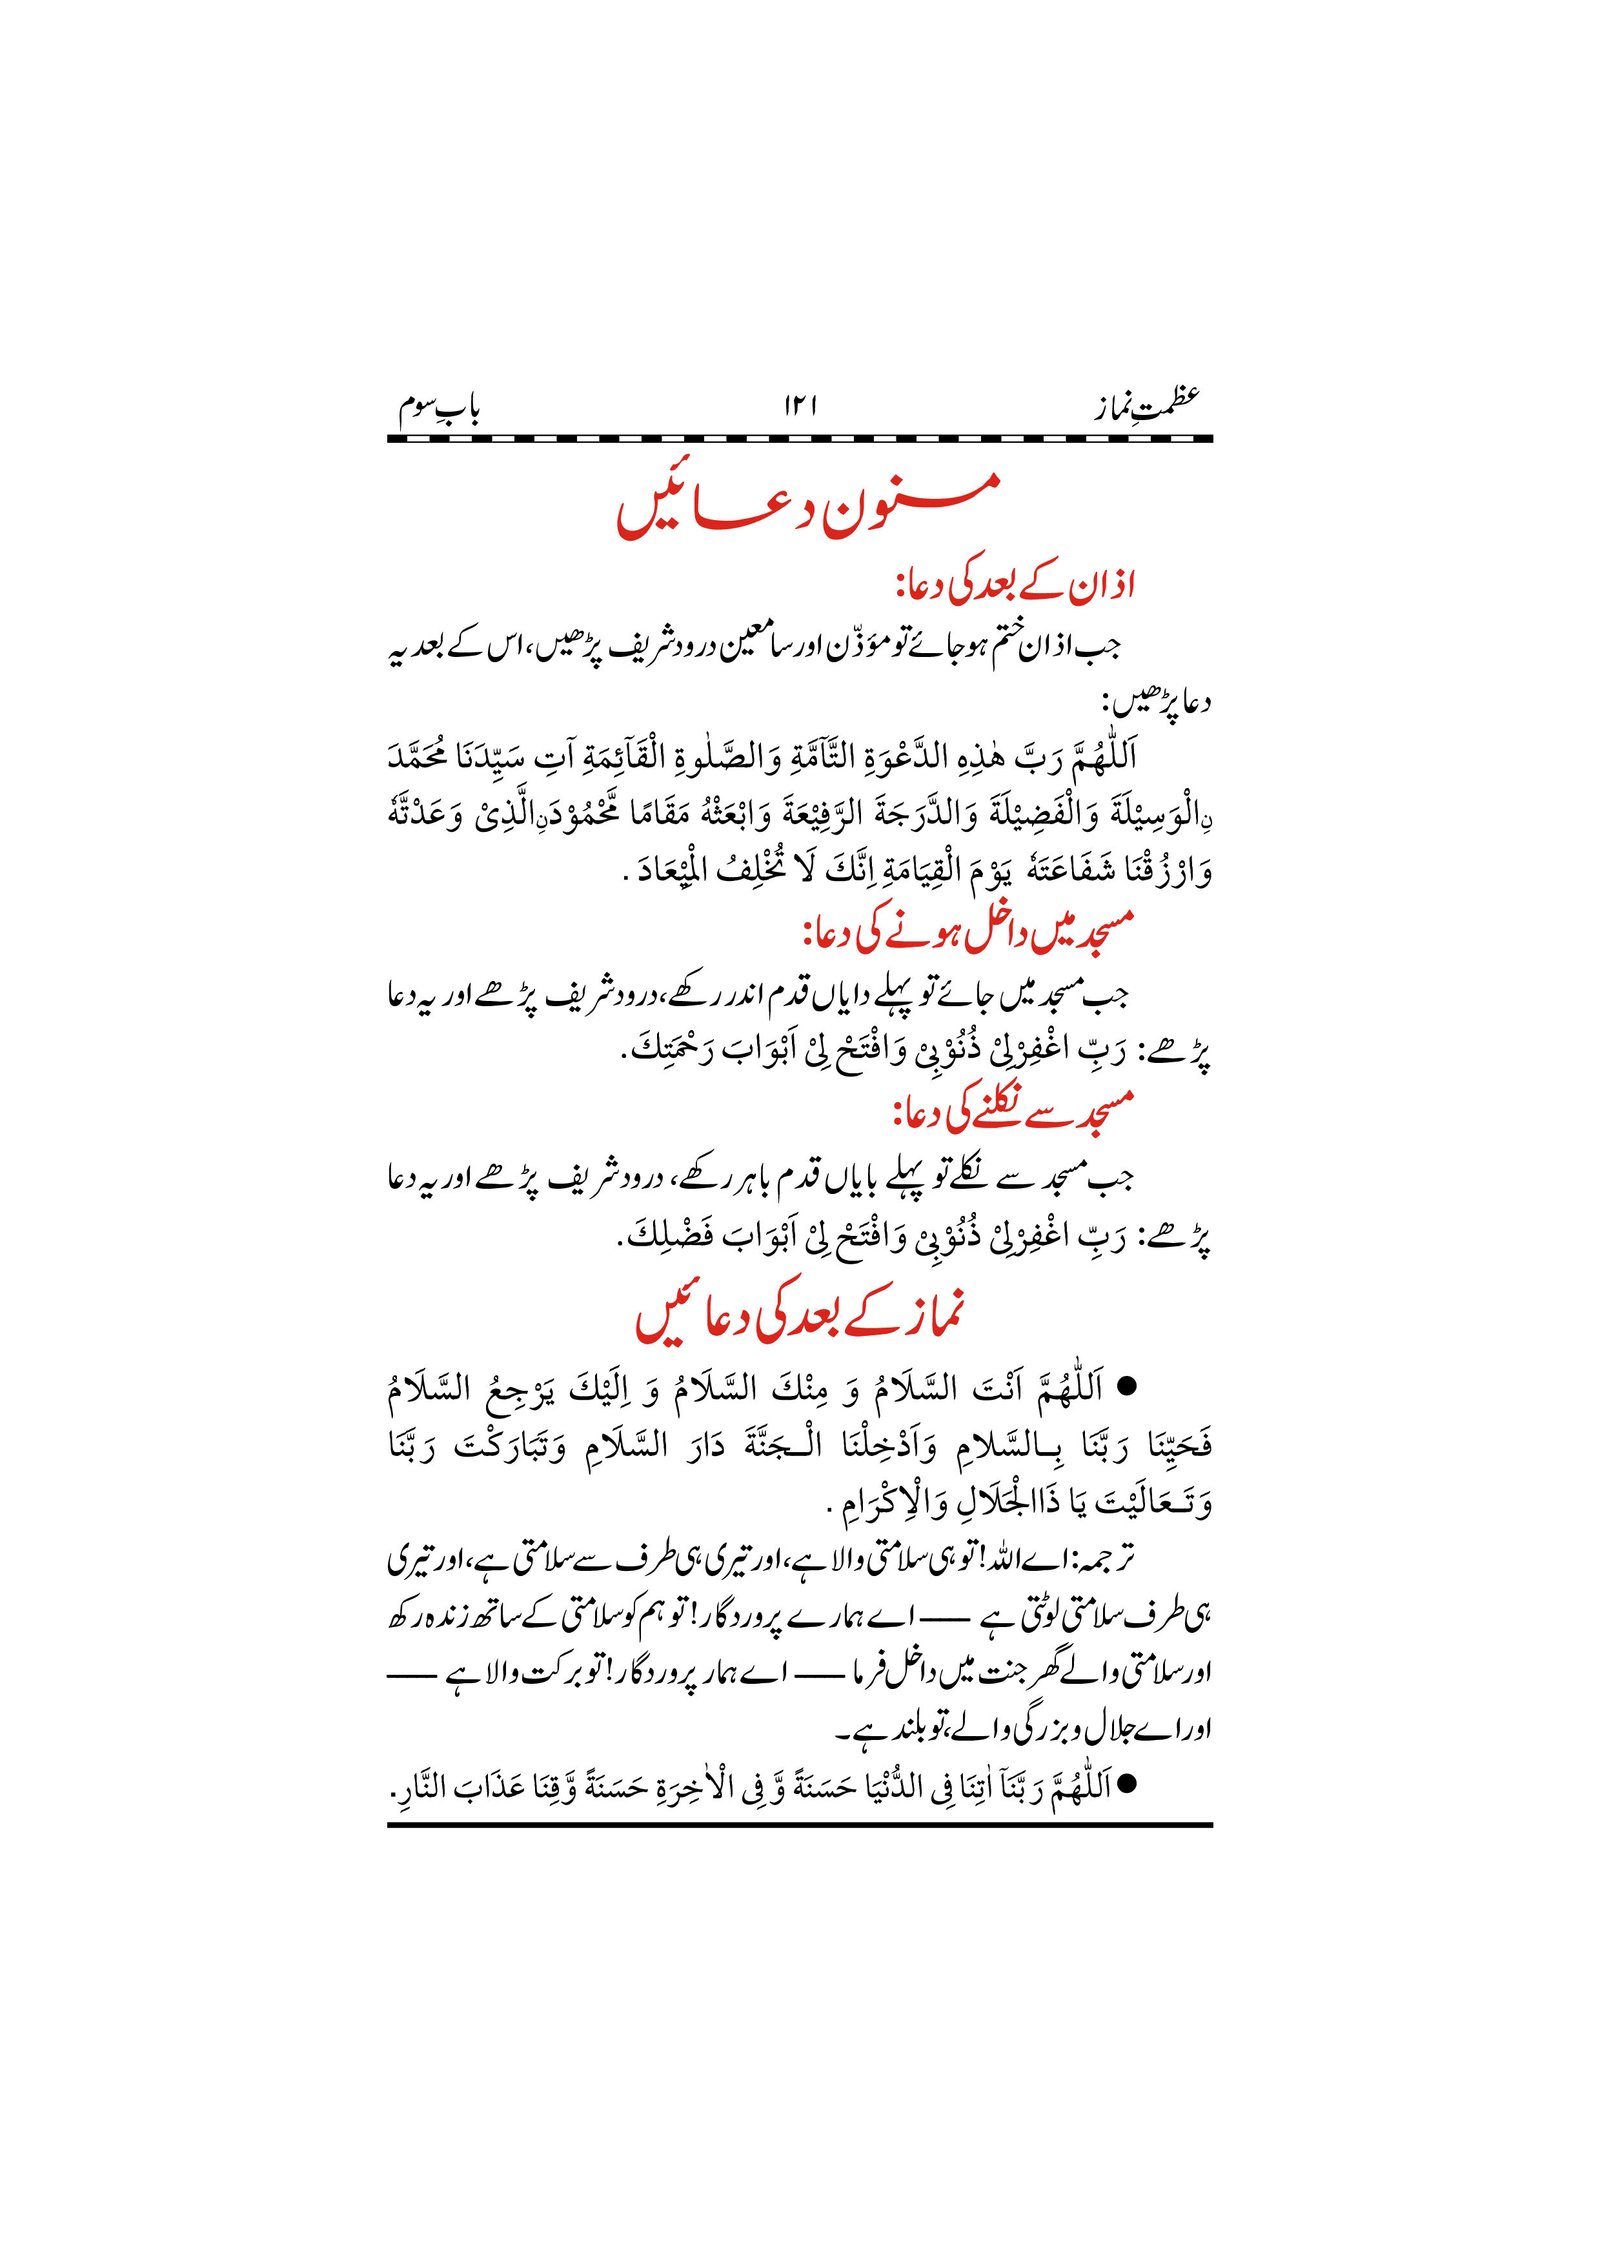 عظمتِ نماز ۱۲۱ بابِ سوم
مسنون دعائیں
اذان کے بعد کی دعا:
جب اذان ختم ہوجائے تو مؤذّن اور سامعین درود شریف پڑھیں، اس کے بعد یہ
دعا پڑھیں:
اَللّٰهُمَّ رَبَّ هٰذِهِ الدَّعْوَةِ التَّآمَّةِ وَالصَّلٰوةِ الْقَآئِمَةِ آتِ سَيِّدَنَا مُحَمَّدَ
نِالْوَسِيْلَةَ وَالْفَضِيْلَةَ وَالدَّرَجَةَ الرَّفِيْعَةَ وَابْعَثْهُ مَقَامًا مَّحْمُوْدَنِالَّذِىْ وَعَدْتَّهٗ
وَارْزُقْنَا شَفَاعَتَهٗ يَوْمَ الْقِيَامَةِ اِنَّكَ لَا تُخْلِفُ الْمِيْعَادَ .
مسجد میں داخل ہونے کی دعا:
جب مسجد میں جائے تو پہلے دایاں قدم اندر رکھے، درود شریف پڑھے اور یہ دعا
پڑھے: رَبِّ اغْفِرْلِىْ ذُنُوْبِىْ وَافْتَحْ لِىْ اَبْوَابَ رَحْمَتِكَ.
مسجد سے نکلنے کی دعا:
جب مسجد سے نکلے تو پہلے بایاں قدم باہر رکھے، درود شریف پڑھے اور یہ دعا
پڑھے: رَبِّ اغْفِرْلِىْ ذُنُوْبِىْ وَافْتَحْ لِىْ اَبْوَابَ فَضْلِكَ.
نماز کے بعد کی دعائیں
● اَللّٰهُمَّ اَنْتَ السَّلَامُ وَ مِنْكَ السَّلَامُ وَ اِلَيْكَ يَرْجِعُ السَّلَامُ
فَحَيِّنَا رَبَّنَا بِـالسَّلامِ وَاَدْخِلْنَا الْـجَنَّةَ دَارَ السَّلَامِ وَتَبَارَكْتَ رَبَّنَا
وَتَـعَالَيْتَ يَا ذَاالْجَلَالِ وَالْاِكْرَامِ .
ترجمہ: اے اللہ! تو ہی سلامتی والا ہے، اور تیری ہی طرف سے سلامتی ہے، اور تیری
ہی طرف سلامتی لوٹتی ہے —— اے ہمارے پروردگار! تو ہم کو سلامتی کے ساتھ زندہ رکھ
اور سلامتی والے گھر جنت میں داخل فرما —— اے ہمار پروردگار! تو برکت والا ہے ——
اور اے جلال و بزرگی والے، تو بلند ہے۔
● اَللّٰهُمَّ رَبَّنَآ اٰتِنَا فِى الدُّنْيَا حَسَنَةً وَّ فِى الْاٰخِرَةِ حَسَنَةً وَّقِنَا عَذَابَ النَّارِ.